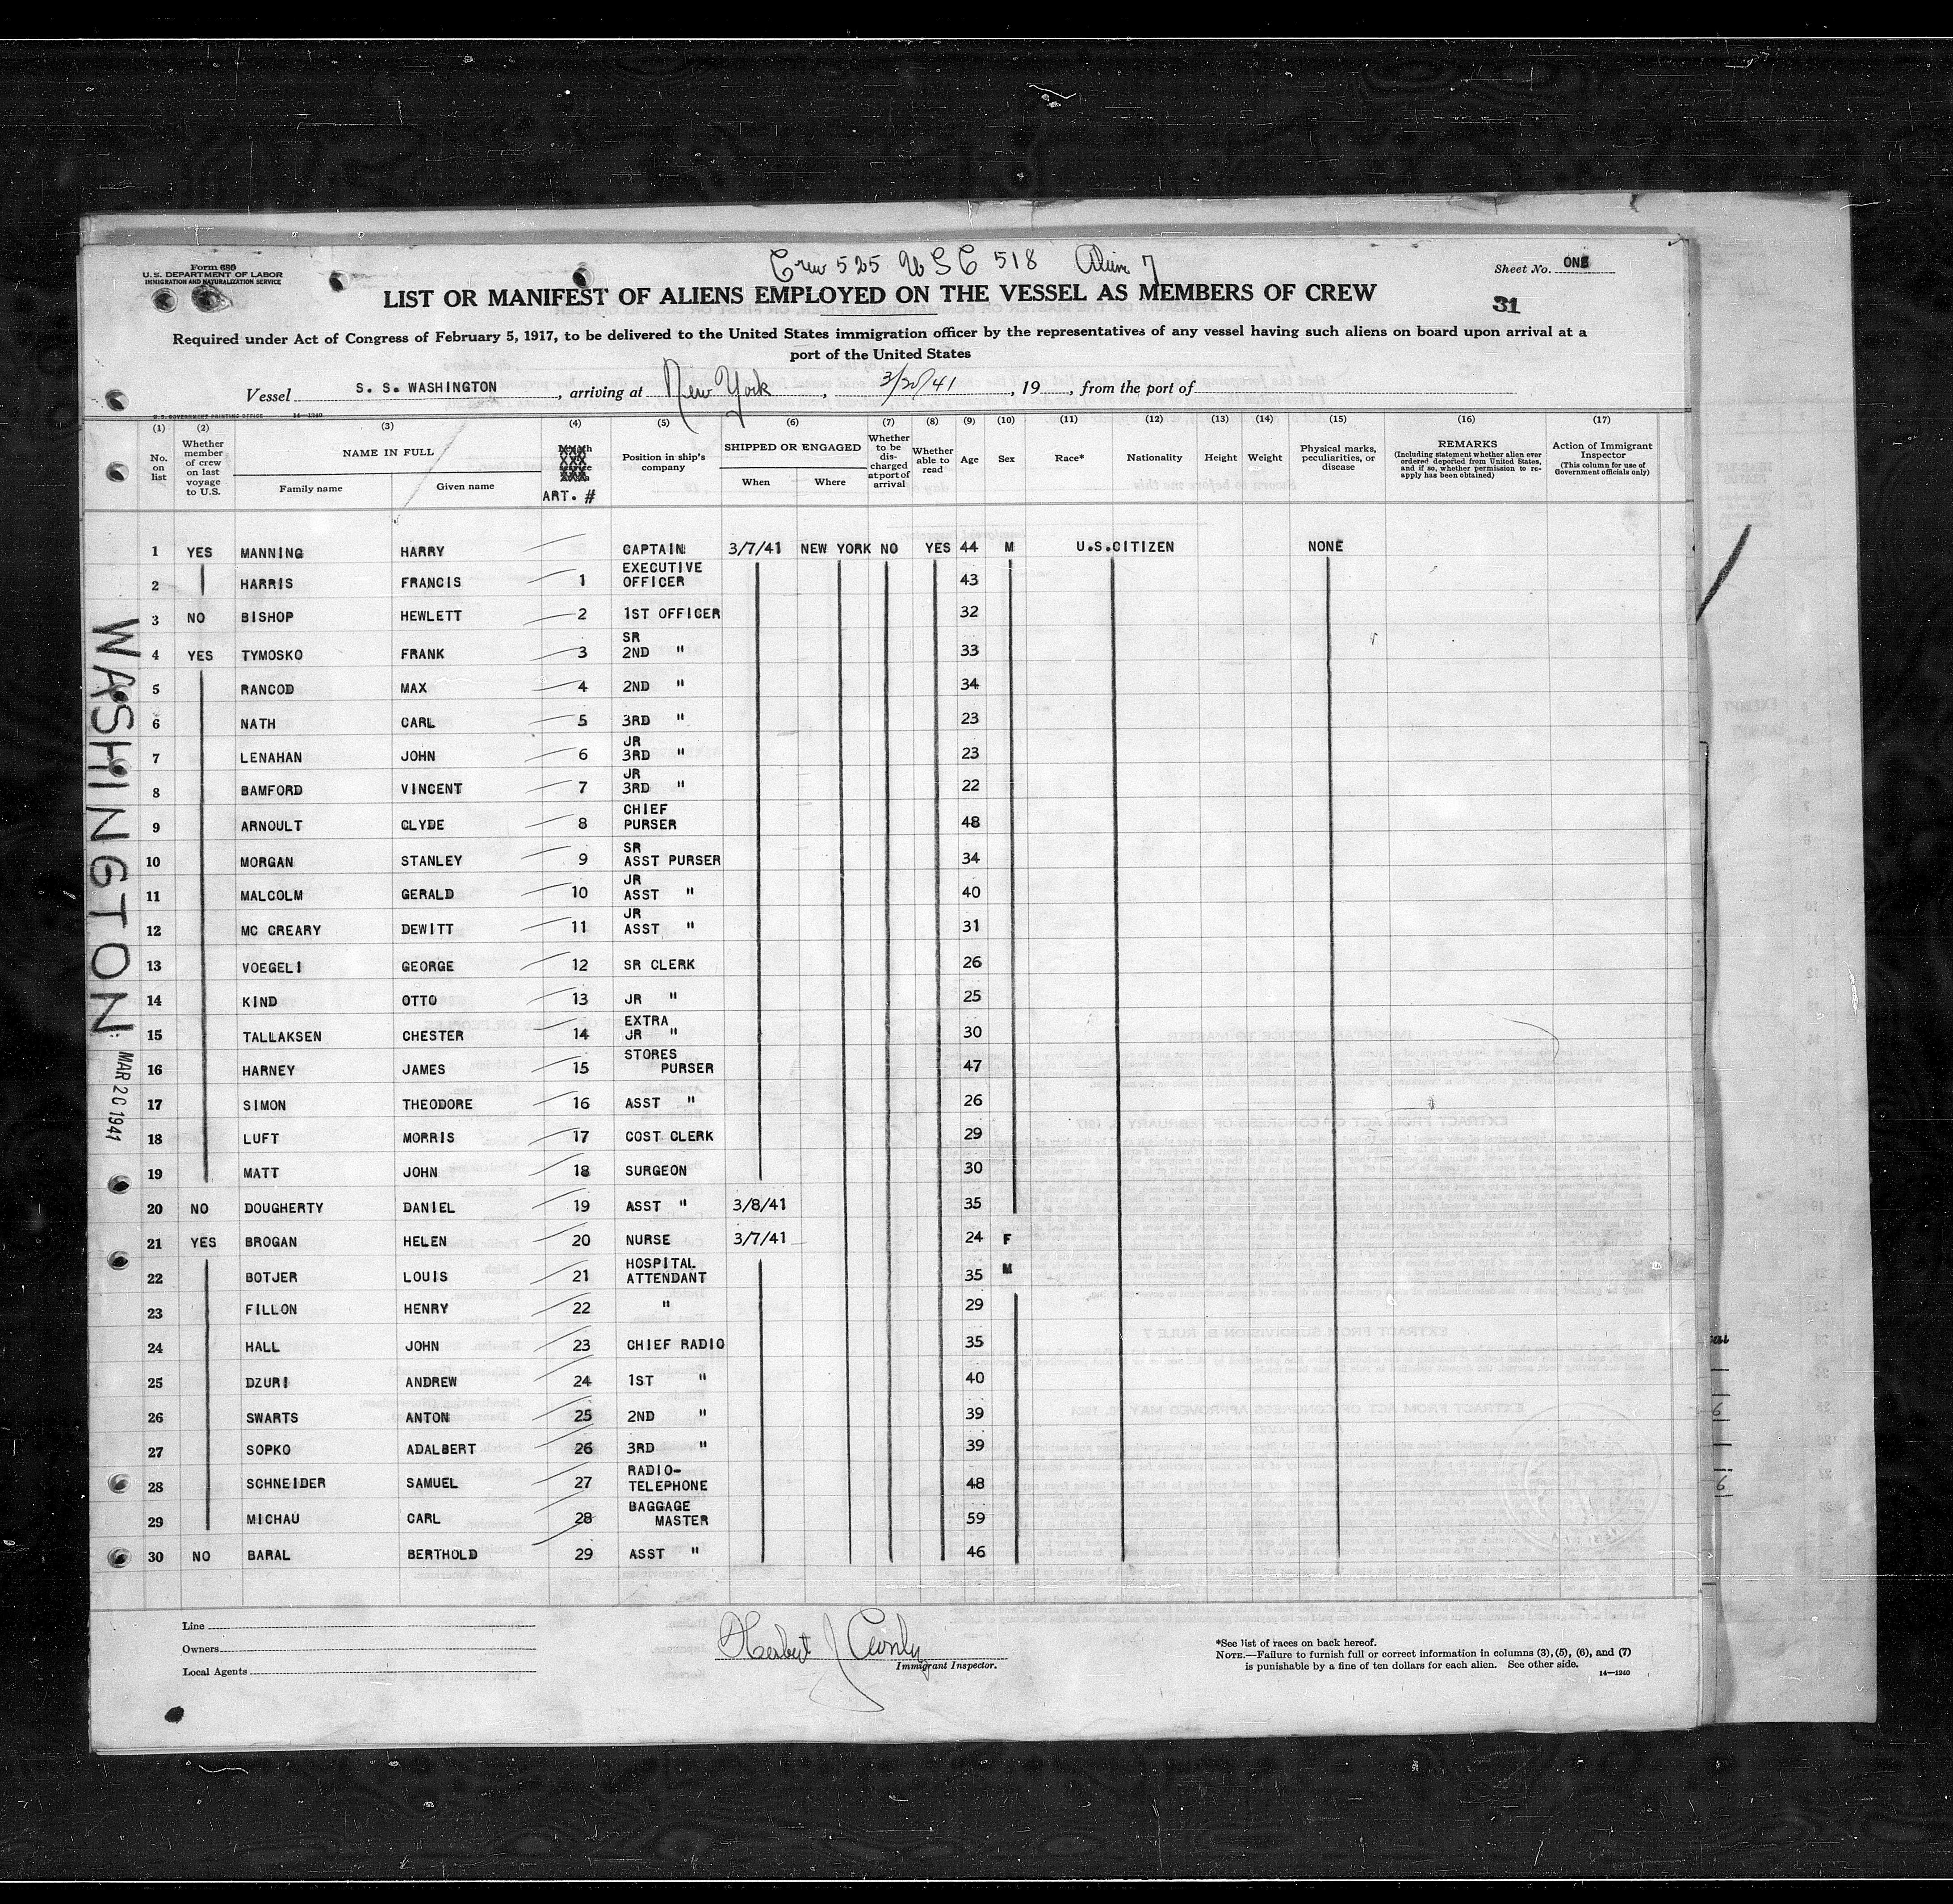 Form 680
U.S. DEPARTMENT OF LABOR
IMMIGRATION AND NATURALIZATION SERVICE
Crew 525 USC 518 Alien 7
Sheet No. ONE
31
LIST OR MANIFEST OF ALIENS EMPLOYED ON THE VESSEL AS MEMBERS OF CREW
Required under Act of Congress of February 5, 1917, to be delivered to the United States immigration officer by the representatives of any vessel having such aliens on board upon arrival at a
port of the United States
Vessel S. S. WASHINGTON, arriving at New York, 3/20/41, 19, from the port of
U. S. GOVERNMENT PRINTING OFFICE 14—1240
(1) (2) (3) (4) (5) (6) (7) (8) (9) (10) (11) (12) (13) (14) (15) (16) (17)
No. on list
Whether member of crew on last voyage to U.S.
NAME IN FULL
Family name
Given name
ART. #
Position in ship's company
SHIPPED OR ENGAGED
When
Where
Whether to be discharged at port of arrival
Whether able to read
Age
Sex
Race*
Nationality
Height
Weight
Physical marks, peculiarities, or disease
REMARKS
(Including statement whether alien ever ordered deported from United States, and if so, whether permission to reapply has been obtained)
Action of Immigrant Inspector
(This column for use of Government officials only)
1 YES MANNING HARRY CAPTAIN 3/7/41 NEW YORK NO YES 44 M U.S.CITIZEN NONE
2 HARRIS FRANCIS 1 EXECUTIVE OFFICER 43
3 NO BISHOP HEWLETT 2 1ST OFFICER 32
4 YES TYMOSKO FRANK 3 SR 2ND " 33
5 RANCOD MAX 4 2ND " 34
6 NATH CARL 5 3RD " 23
7 LENAHAN JOHN 6 JR 3RD " 23
8 BAMFORD VINCENT 7 JR 3RD " 22
9 ARNOULT CLYDE 8 CHIEF PURSER 48
10 MORGAN STANLEY 9 SR ASST PURSER 34
11 MALCOLM GERALD 10 JR ASST " 40
12 MC CREARY DEWITT 11 JR ASST " 31
13 VOEGELI GEORGE 12 SR CLERK 26
14 KIND OTTO 13 JR " 25
15 TALLAKSEN CHESTER 14 EXTRA JR " 30
16 HARNEY JAMES 15 STORES PURSER 47
17 SIMON THEODORE 16 ASST " 26
18 LUFT MORRIS 17 COST CLERK 29
19 MATT JOHN 18 SURGEON 30
20 NO DOUGHERTY DANIEL 19 ASST " 3/8/41 35
21 YES BROGAN HELEN 20 NURSE 3/7/41 24 F
22 BOTJER LOUIS 21 HOSPITAL ATTENDANT 35 M
23 FILLON HENRY 22 " 29
24 HALL JOHN 23 CHIEF RADIO 35
25 DZURI ANDREW 24 1ST " 40
26 SWARTS ANTON 25 2ND " 39
27 SOPKO ADALBERT 26 3RD " 39
28 SCHNEIDER SAMUEL 27 RADIO-TELEPHONE 48
29 MICHAU CARL 28 BAGGAGE MASTER 59
30 NO BARAL BERTHOLD 29 ASST " 46
WASHINGTON
MAR 20 1941
Line
Owners
Local Agents
Herbert J
Immigrant Inspector.
*See list of races on back hereof.
NOTE.—Failure to furnish full or correct information in columns (3), (5), (6), and (7)
is punishable by a fine of ten dollars for each alien. See other side.
14—1240